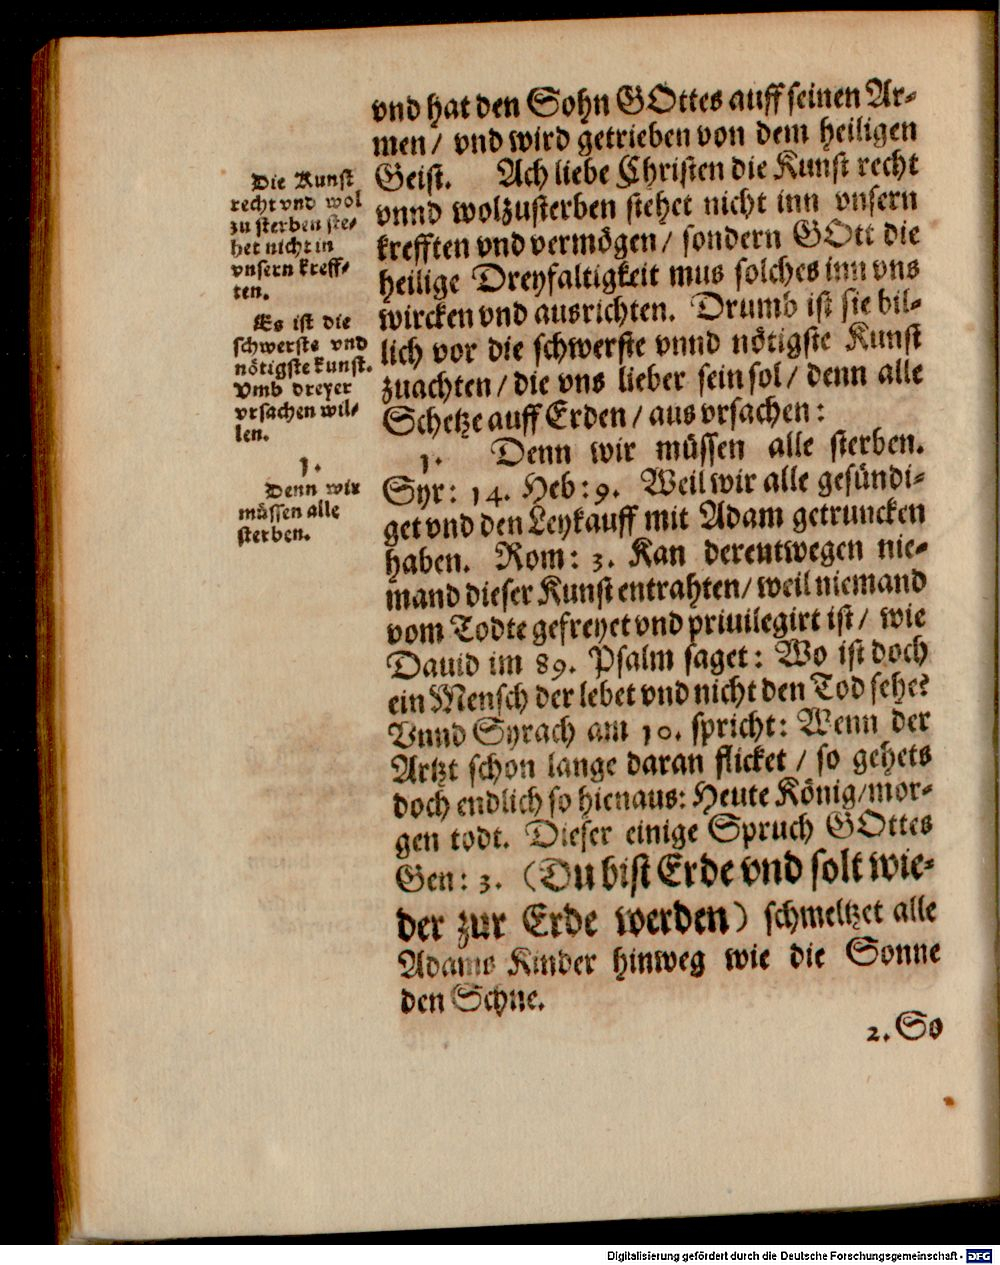 vnd hat den Sohn GOttes auff seinen Ar-
men / vnd wird getrieben von dem heiligen
Geist. Ach liebe Christen die Kunst recht
vnnd wolzusterben stehet nicht inn vnsern
krefften vnd vermögen / sondern GOtt die
heilige Dreyfaltigkeit mus solches inn vns
wircken vnd ausrichten. Drumb ist sie bil-
lich vor die schwerste vnnd nötigste Kunst
zuachten / die vns lieber sein sol / denn alle
Schetze auff Erden / aus vrsachen:
1. Denn wir müssen alle sterben.
Syr: 14. Heb: 9. Weil wir alle gesündi-
get vnd den Leykauff mit Adam getruncken
haben. Rom: 3. Kan derentwegen nie-
mand dieser Kunst entrahten / weil niemand
vom Todte gefreyet vnd priuilegirt ist / wie
Dauid im 89. Psalm saget: Wo ist doch
ein Mensch der lebet vnd nicht den Tod sehe?
Vnnd Syrach am 10. spricht: Wenn der
Artzt schon lange daran flicket / so gehets
doch endlich so hienaus: Heute König / mor-
gen todt. Dieser einige Spruch GOttes
Gen: 3. (Du bist Erde vnd solt wie-
der zur Erde werden) schmeltzet alle
Adams Kinder hinweg wie die Sonne
den Schne.
2. So
Die Kunst
recht vnd wol
zu sterben ste-
het nicht in
vnsern kreff-
ten.
Es ist die
schwerste vnd
nötigste kunst.
Vmb dreyer
vrsachen wil-
len.
1.
Denn wir
müssen alle
sterben.
Digitalisierung gefördert durch die Deutsche Forschungsgemeinschaft - DFG